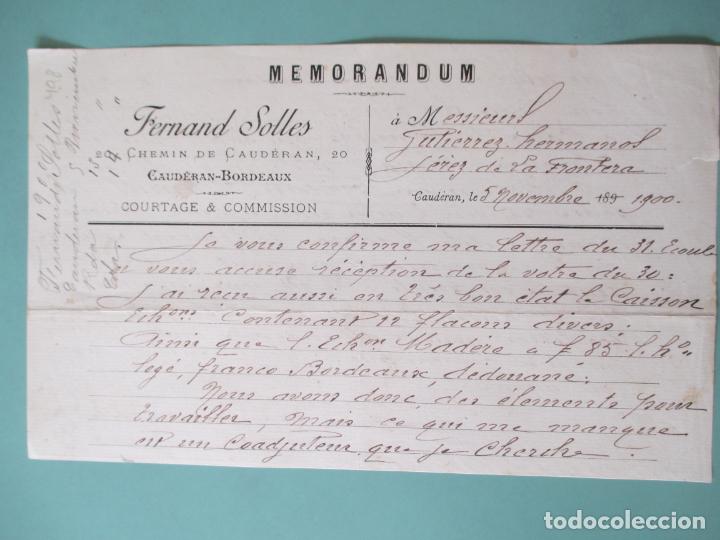 MEMORANDUM
Fernand Solles
20 CHEMIN DE CAUDÉRAN, 20
CAUDÉRAN-BORDEAUX
COURTAGE & COMMISSION
à Messieurs
Gutierrez hermanos
Jérez de La Frontera
Caudéran, le 5 Novembre 189 1900.
Je vous confirme ma lettre du 31. Ecoulé
& vous accuse réception de la votre du 30:
j'ai reçu aussi en très bon état la Caisson
Echons Contenant 12 flacons divers:
Ainsi que l'Echon Madère à F 85 l.ho
logé, franco Bordeaux, dédouané.
Nous avons donc des éléments pour
travailler, mais ce qui me manque
est un Coadjuteur que je cherche.
1900
Fernando Solles 498
Cauderan 5 Noviembre
Rda 15 "
Cda 17 "
todocoleccion.net